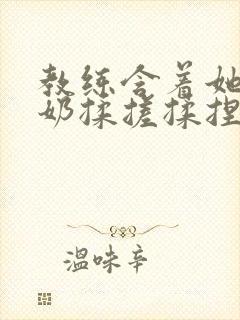 教练含着她
奶揉搓揉捏
温味辛